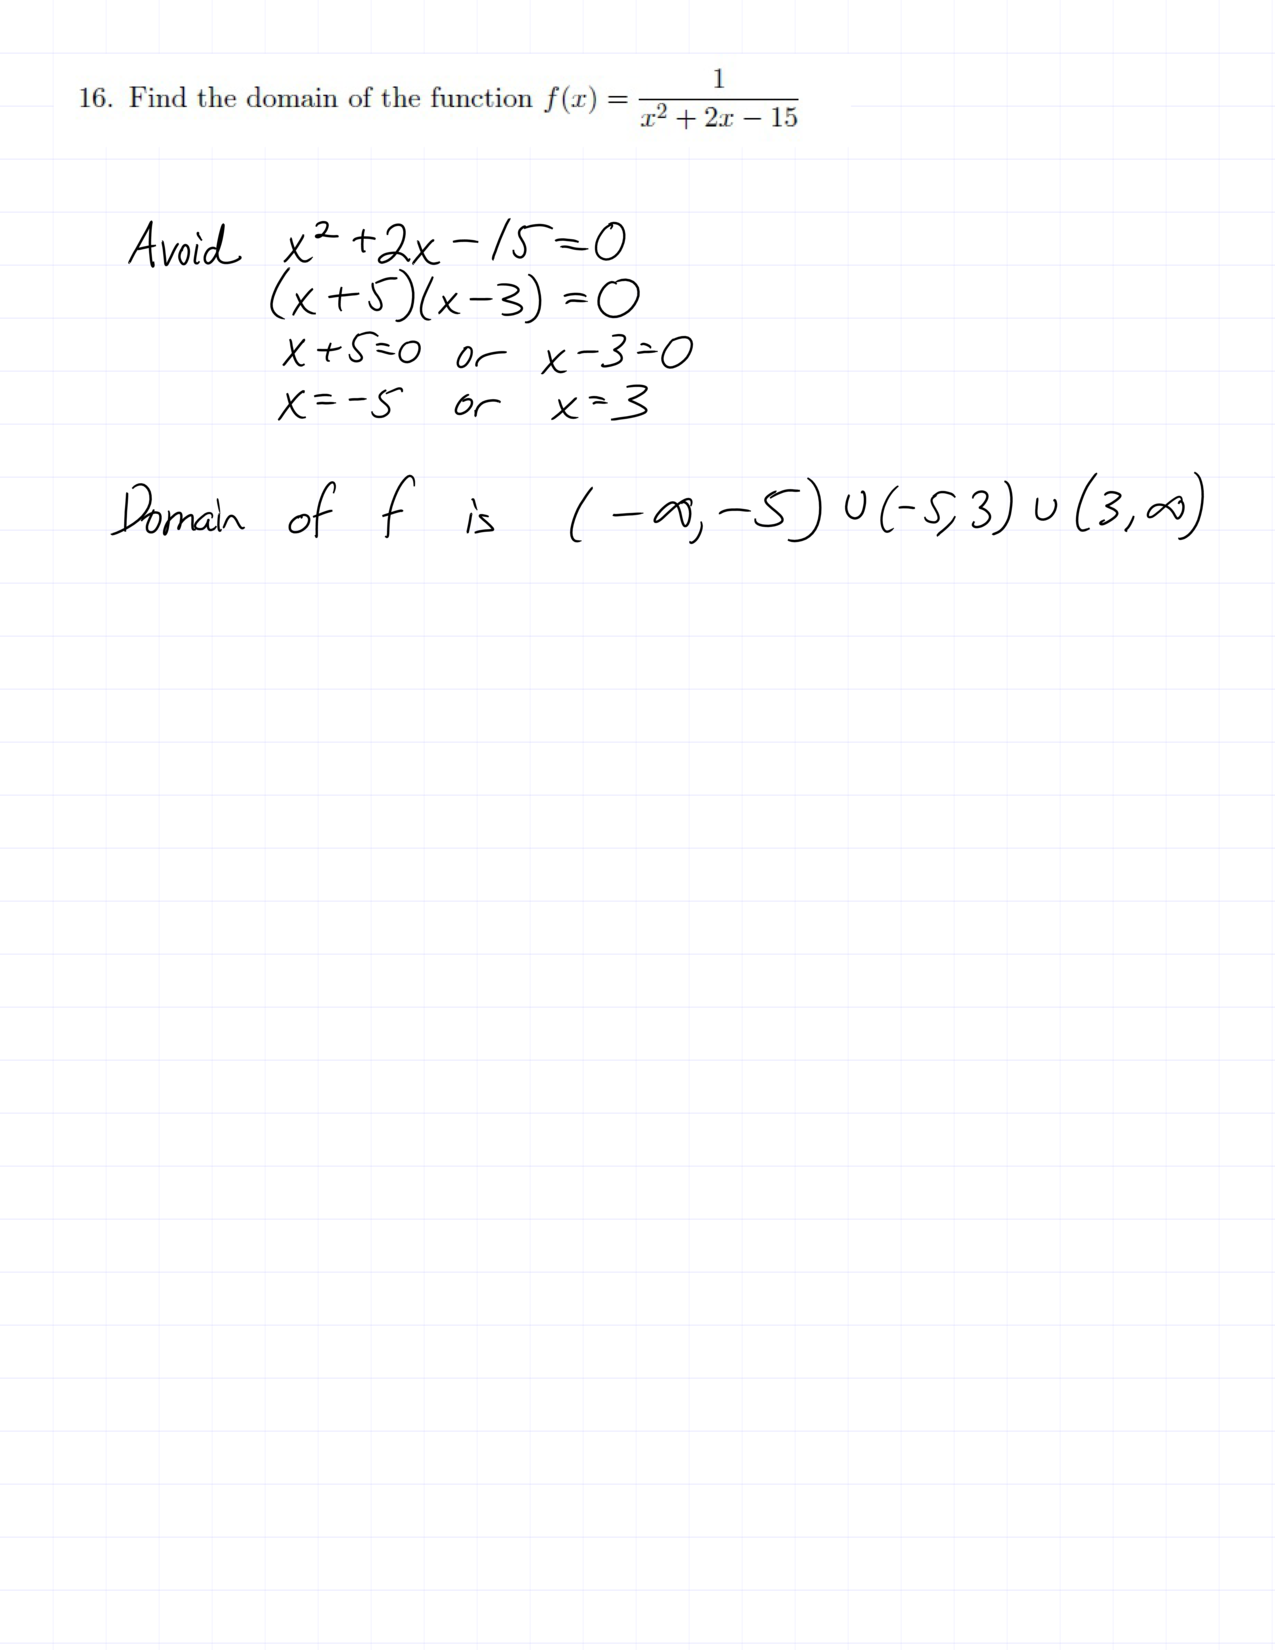 16. Find the domain of the function f(x) = 1/(x² + 2x − 15)
Avoid x² + 2x − 15 = 0
(x+5)(x−3) = 0
x+5=0 or x−3=0
x=−5 or x=3
Domain of f is (−∞,−5) ∪ (−5,3) ∪ (3,∞)